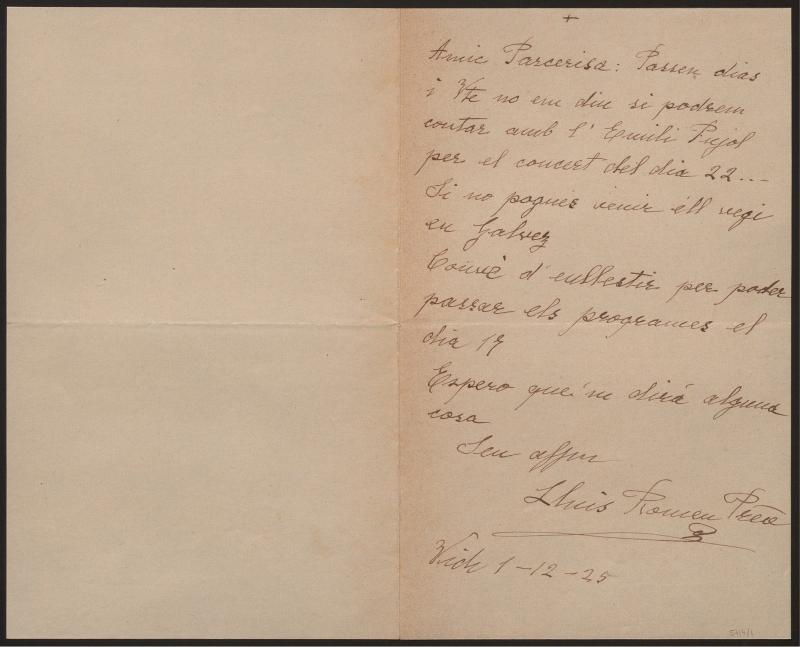 +
Amic Parcerisa: Passen dias
i Vte no em diu si podrem
contar amb l' Emili Pujol
per el concert del dia 22...
Si no pogues venir éll vegi
en Galvez
Convé d' enllestir per poder
passar els programes el
dia 15
Espero que'm dirá alguna
cosa
Seu affm
Lluis Romeu Prev
Vich 1-12-25